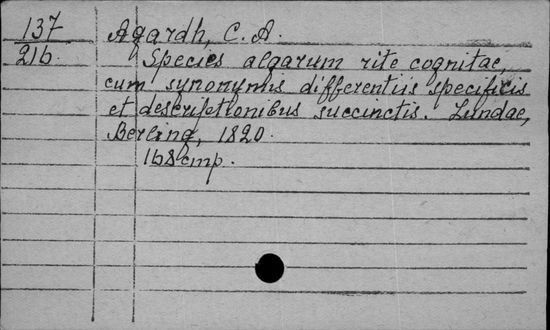 137 Agardh, C. A.
216. Species algarum rite cognitae,
cum synonymis differentiis specificis
et descriptionibus succinctis. Lundae,
Berling, 1820.
168 cmp.